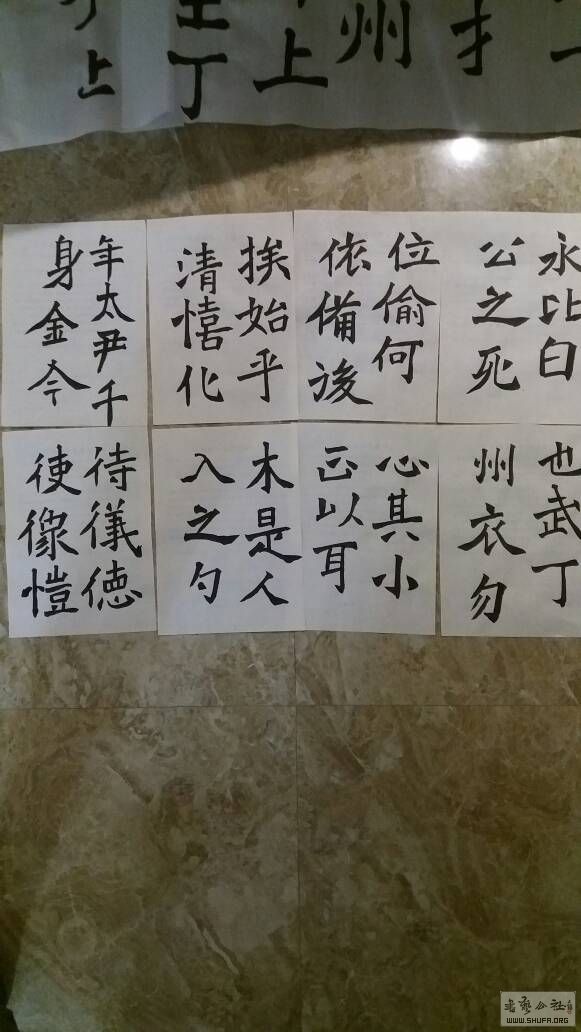 才
州
上
丁
上
永比白
公之死
位偷何
依備後
挨始乎
清憘化
年太尹千
身金今
也武丁
州衣勿
心其小
正以耳
木是人
入之勺
待儀德
使像愷
書藝公社
WWW.SHUFA.ORG